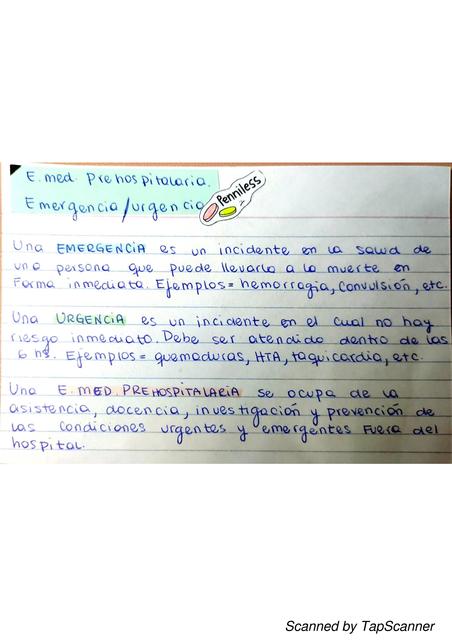 E. med. Prehospitalaria.
Emergencia/urgencia
Penniless
Una EMERGENCIA es un incidente en la salud de
una persona que puede llevarlo a la muerte en
forma inmediata. Ejemplos= hemorragia, convulsión, etc.
Una URGENCIA es un incidente en el cual no hay
riesgo inmediato. Debe ser atendido dentro de las
6 hs. Ejemplos= quemaduras, HTA, taquicardia, etc.
Una E. MED. PREHOSPITALARIA se ocupa de la
asistencia, docencia, investigación y prevención de
las condiciones urgentes y emergentes fuera del
hospital.
Scanned by TapScanner